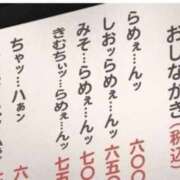 おしながき(税込)
らめぇ…んッ 六〇〇
しおッらめぇ…んッ 六五〇
みそ…らめぇ…んッ 七〇〇
きむちぃッ…らめぇ…んッ 七五
ちゃッ…ハぁン